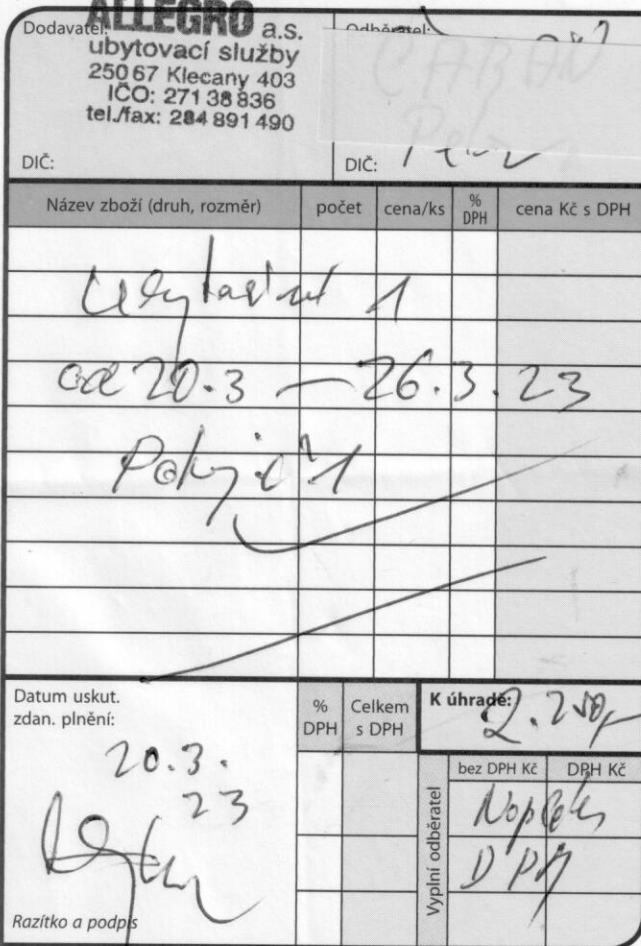 Dodavatel: ALLEGRO a.s.
ubytovací služby
250 67 Klecany 403
IČO: 271 38 836
tel./fax: 284 891 490
DIČ:
Odběratel:
DIČ:
Název zboží (druh, rozměr) počet cena/ks % DPH cena Kč s DPH
Ubytování 1
od 20.3 — 26.3.23
Pokoj č 1
Datum uskut.
zdan. plnění:
20.3.
23
Razítko a podpis
% DPH Celkem s DPH
K úhradě: 2.250,-
bez DPH Kč DPH Kč
Vyplní odběratel
DPH